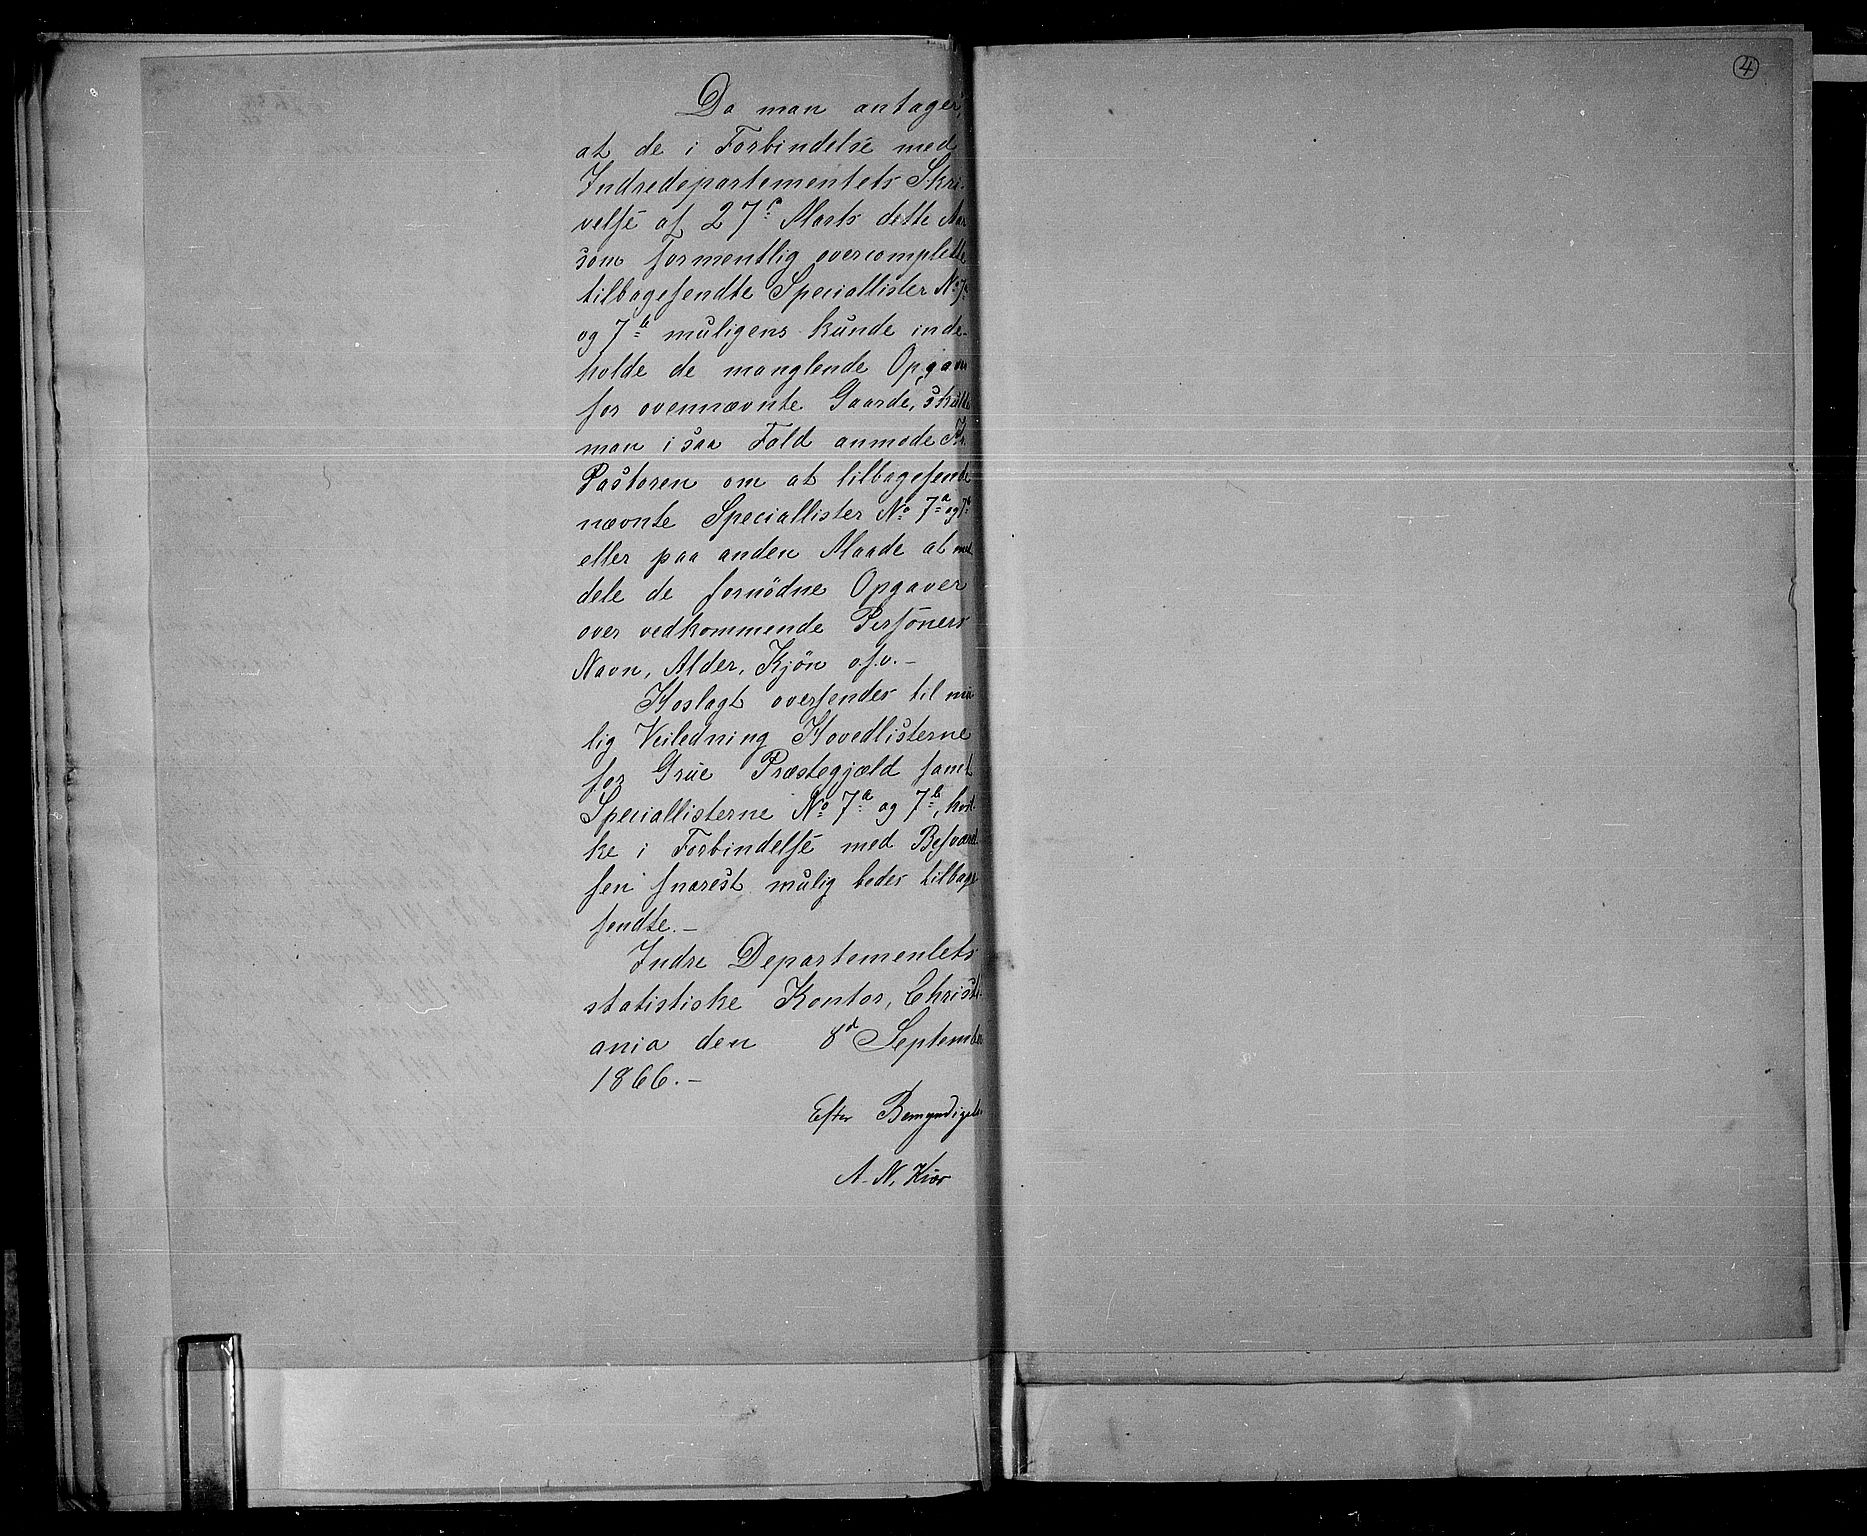 4
Da man antager,
at de i Forbindelse med
Indredepartementets Skri-
velse af 27de Marts dette Aar
som formentlig overcomplette
tilbagesendte Speciallister No 7a
og 7b muligens kunde inde-
holde de manglende Opgaver
for ovennævnte Gaarde, skulde
man i saa Fald anmode Hr.
Pastoren om at tilbagesende
nævnte Speciallister No 7a og 7b
eller paa anden Maade at med
dele de fornödne Opgaver
over vedkommende Personers
Navn, Alder, Kjön o.s.v. –
Hoslagt oversendes til mu
lig Veiledning Hovedlisterne
for Grue Præstegjæld samt
Speciallisterne No 7a og 7b, hvil-
ke i Forbindelse med Besvarel-
sen snarest mulig bedes tilbage
sendte. –
Indre Departementets
statistiske Kontor, Christi-
ania den 8d September
1866. –
Efter Bemyndigelse
A. N. Kiær